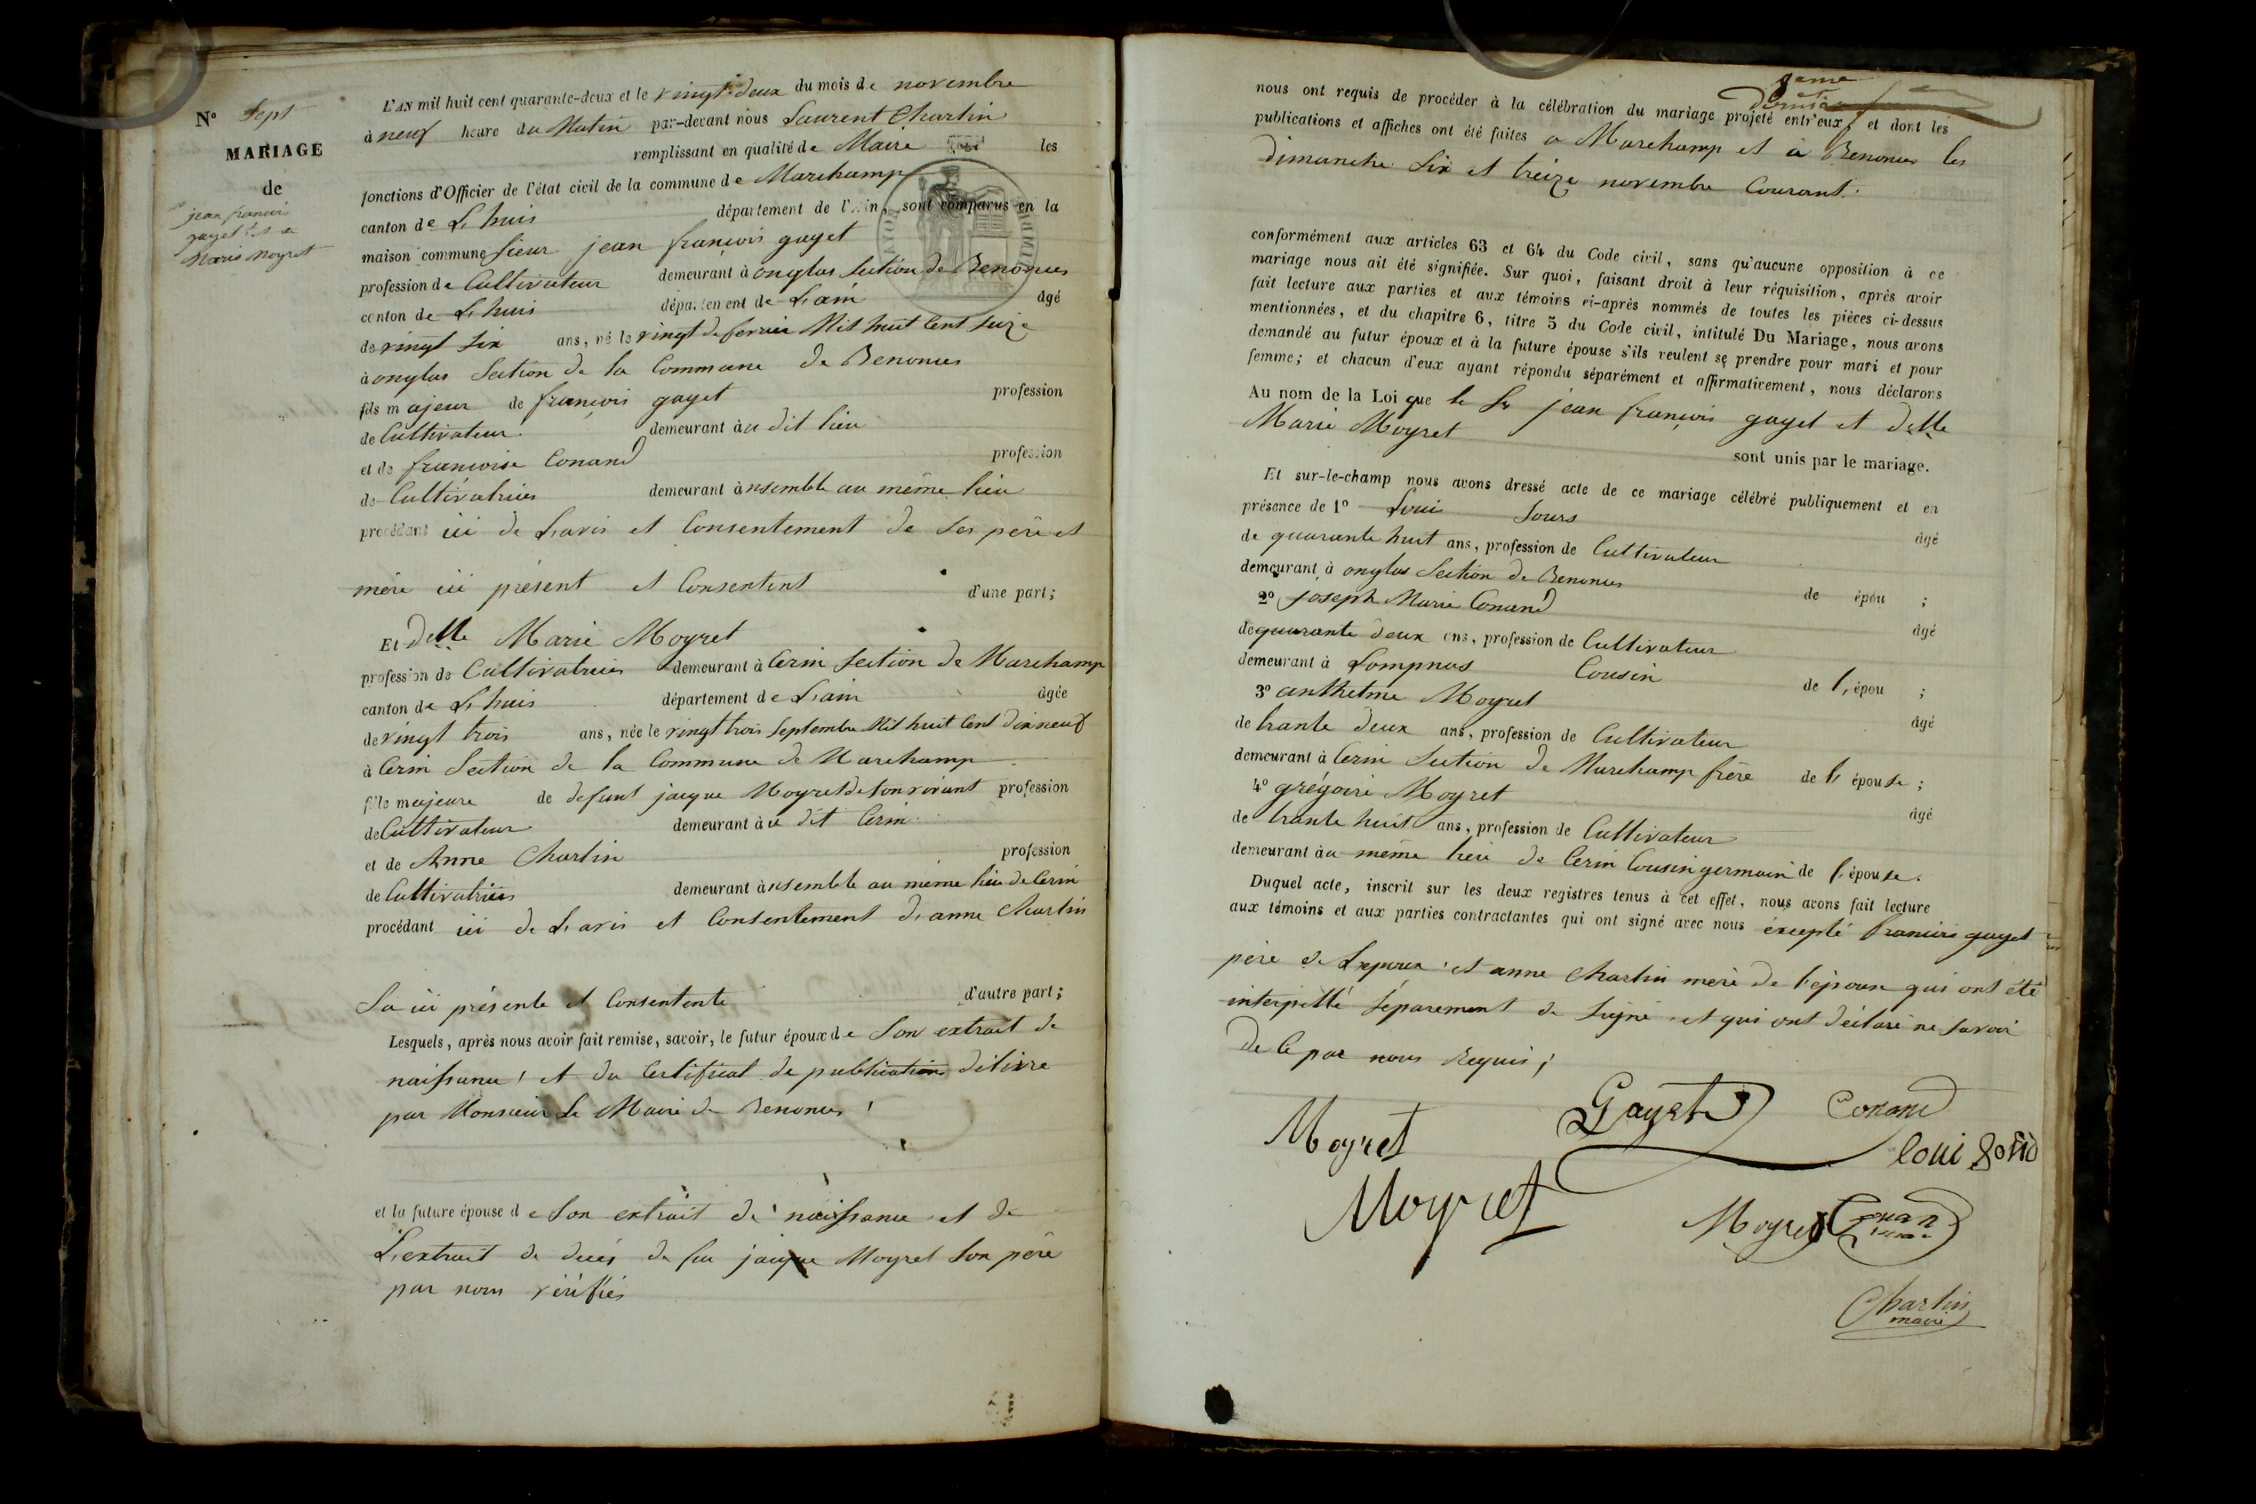 N° Sept
MARIAGE
de
jean francois
gayet et de
Marie Moyret
L'AN mil huit cent quarante-deux et le vingt deux du mois de novembre
à neuf heure du Matin par-devant nous Laurent Charlin
remplissant en qualité de Maire les
fonctions d'Officier de l'état civil de la commune de Marchamp
canton de L,huis département de l'Ain, sont comparus en la
maison commune Sieur jean françois gayet
profession de Cultivateur demeurant à onglas Section de Benonces
canton de L,huis département de L,ain âgé
de vingt Six ans, né le vingt de fevrier Mil huit Cent Seize
à onglas Section de la Commune de Benonces
fils majeur de françois gayet profession
de Cultivateur demeurant au dit lieu
et de françoise Conand profession
de Cultivatrices demeurant ensemble au même lieu
procédant ici de L,avis et Consentement de Ses père et
mère ici présent et Consentent d'une part;
Et delle Marie Moyret
profession de Cultivatrices demeurant à Cerin Section de Marchamp
canton de L,huis département de L,ain âgée
de vingt trois ans, née le vingt trois Septembre Mil huit Cent dix neuf
à Cerin Section de la Commune de Marchamp
fille majeure de defunt jacque Moyret de Son vivant profession
de Cultivateur demeurant au dit Cerin
et de Anne Charlin profession
de Cultivatrices demeurant ensemble au même lieu de Cerin
procédant ici de L,avis et Consentement d,anne Charlin
Sa ici présente et Consentente d'autre part;
Lesquels, après nous avoir fait remise, savoir, le futur époux de Son extrait de
naissance, et du Certificat de publications délivre
par Monsieur Le Maire de Benonces,
et la future épouse de Son extrait de naissance et de
L,extrait de decés de feu jacque Moyret Son père
par nous vérifiés
nous ont requis de procéder à la célébration du mariage projeté entr'eux, et dont les
publications et affiches ont été faites à Marchamp et à Benonces les
dimanche Six et treize novembre Courant.
conformément aux articles 63 et 64 du Code civil, sans qu'aucune opposition à ce
mariage nous ait été signifiée. Sur quoi, faisant droit à leur réquisition, après avoir
fait lecture aux parties et aux témoins ci-après nommés de toutes les pièces ci-dessus
mentionnées, et du chapitre 6, titre 5 du Code civil, intitulé Du Mariage, nous avons
demandé au futur époux et à la future épouse s'ils veulent se prendre pour mari et pour
femme; et chacun d'eux ayant répondu séparément et affirmativement, nous déclarons
Au nom de la Loi que le Sr jean françois gayet et delle
Marie Moyret
sont unis par le mariage.
Et sur-le-champ nous avons dressé acte de ce mariage célébré publiquement et en
présence de 1° Loui âgé
de quarante huit ans, profession de Cultivateur
demeurant à onglas Section de Benonces de épou ;
2° joseph Marie Conand âgé
de quarante deux ans, profession de Cultivateur
demeurant à Lompnas Cousin de l, épou ;
3° anthelme Moyret âgé
de trante deux ans, profession de Cultivateur
demeurant à Cerin Section de Marchamp frère de l, épouse ;
4° grégoire Moyret âgé
de trante huit ans, profession de Cultivateur
demeurant au même lieu de Cerin Cousin germain de l, épouse.
Duquel acte, inscrit sur les deux registres tenus à cet effet, nous avons fait lecture
aux témoins et aux parties contractantes qui ont signé avec nous éxcepté francois gayet
père de L,epoux, et anne Charlin mere de l'épouse qui ont été
interpellé Séparement de Signé, et qui ont déclaré ne Savoir
de Ce par nous Requis,
Moyret Gayet Conand
Moyret Moyret Conan
Charlin
maire